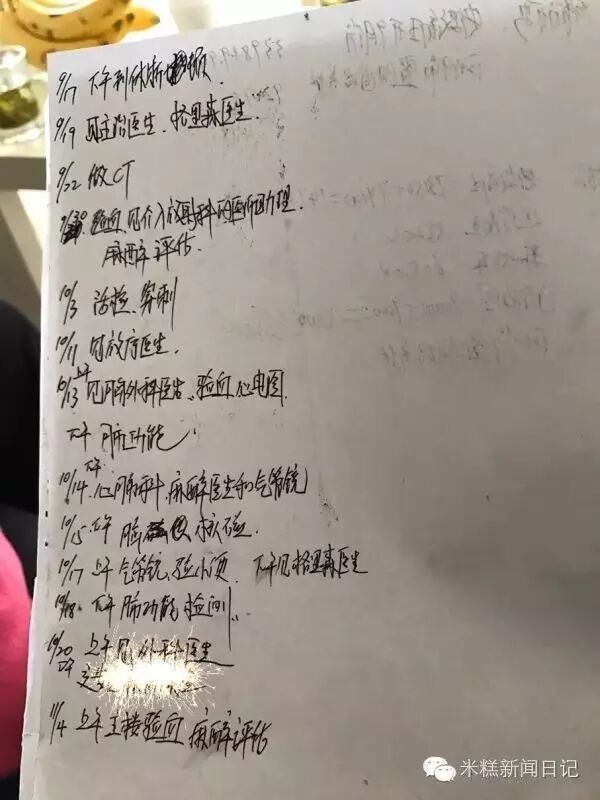 9/17 下午到休斯顿.
9/19 见主治医生、格里森医生.
9/22 做CT
9/30 验血、见介入放射科的医师助理.
麻醉评估.
10/3 活检、穿刺
10/11 见放疗医生.
10/13 上午 见胸外科医生、验血 心电图.
下午 肺功能
10/14 下午 心肺科、麻醉医生和气管镜
10/15 上午 脑 核磁.
10/17 上午 气管镜、验小便 下午见格里森医生
10/18. 下午 肺功能 检测.
10/20 上午 见外科医生
下午
11/4 上午 验血 麻醉评估
米糕新闻日记